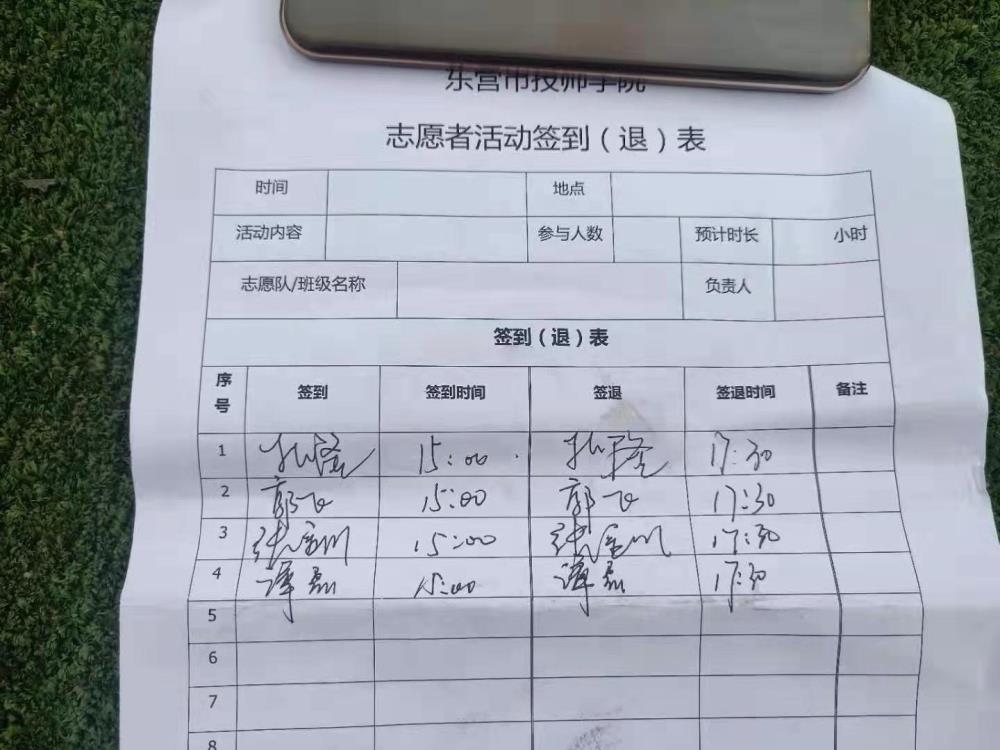 东营市技师学院
志愿者活动签到（退）表
时间 地点
活动内容 参与人数 预计时长 小时
志愿队/班级名称 负责人
签到（退）表
序号 签到 签到时间 签退 签退时间 备注
1 15:00 17:30
2 郭飞 15:00 郭飞 17:30
3 15:00 17:30
4 谭磊 15:00 谭磊 17:30
5
6
7
8